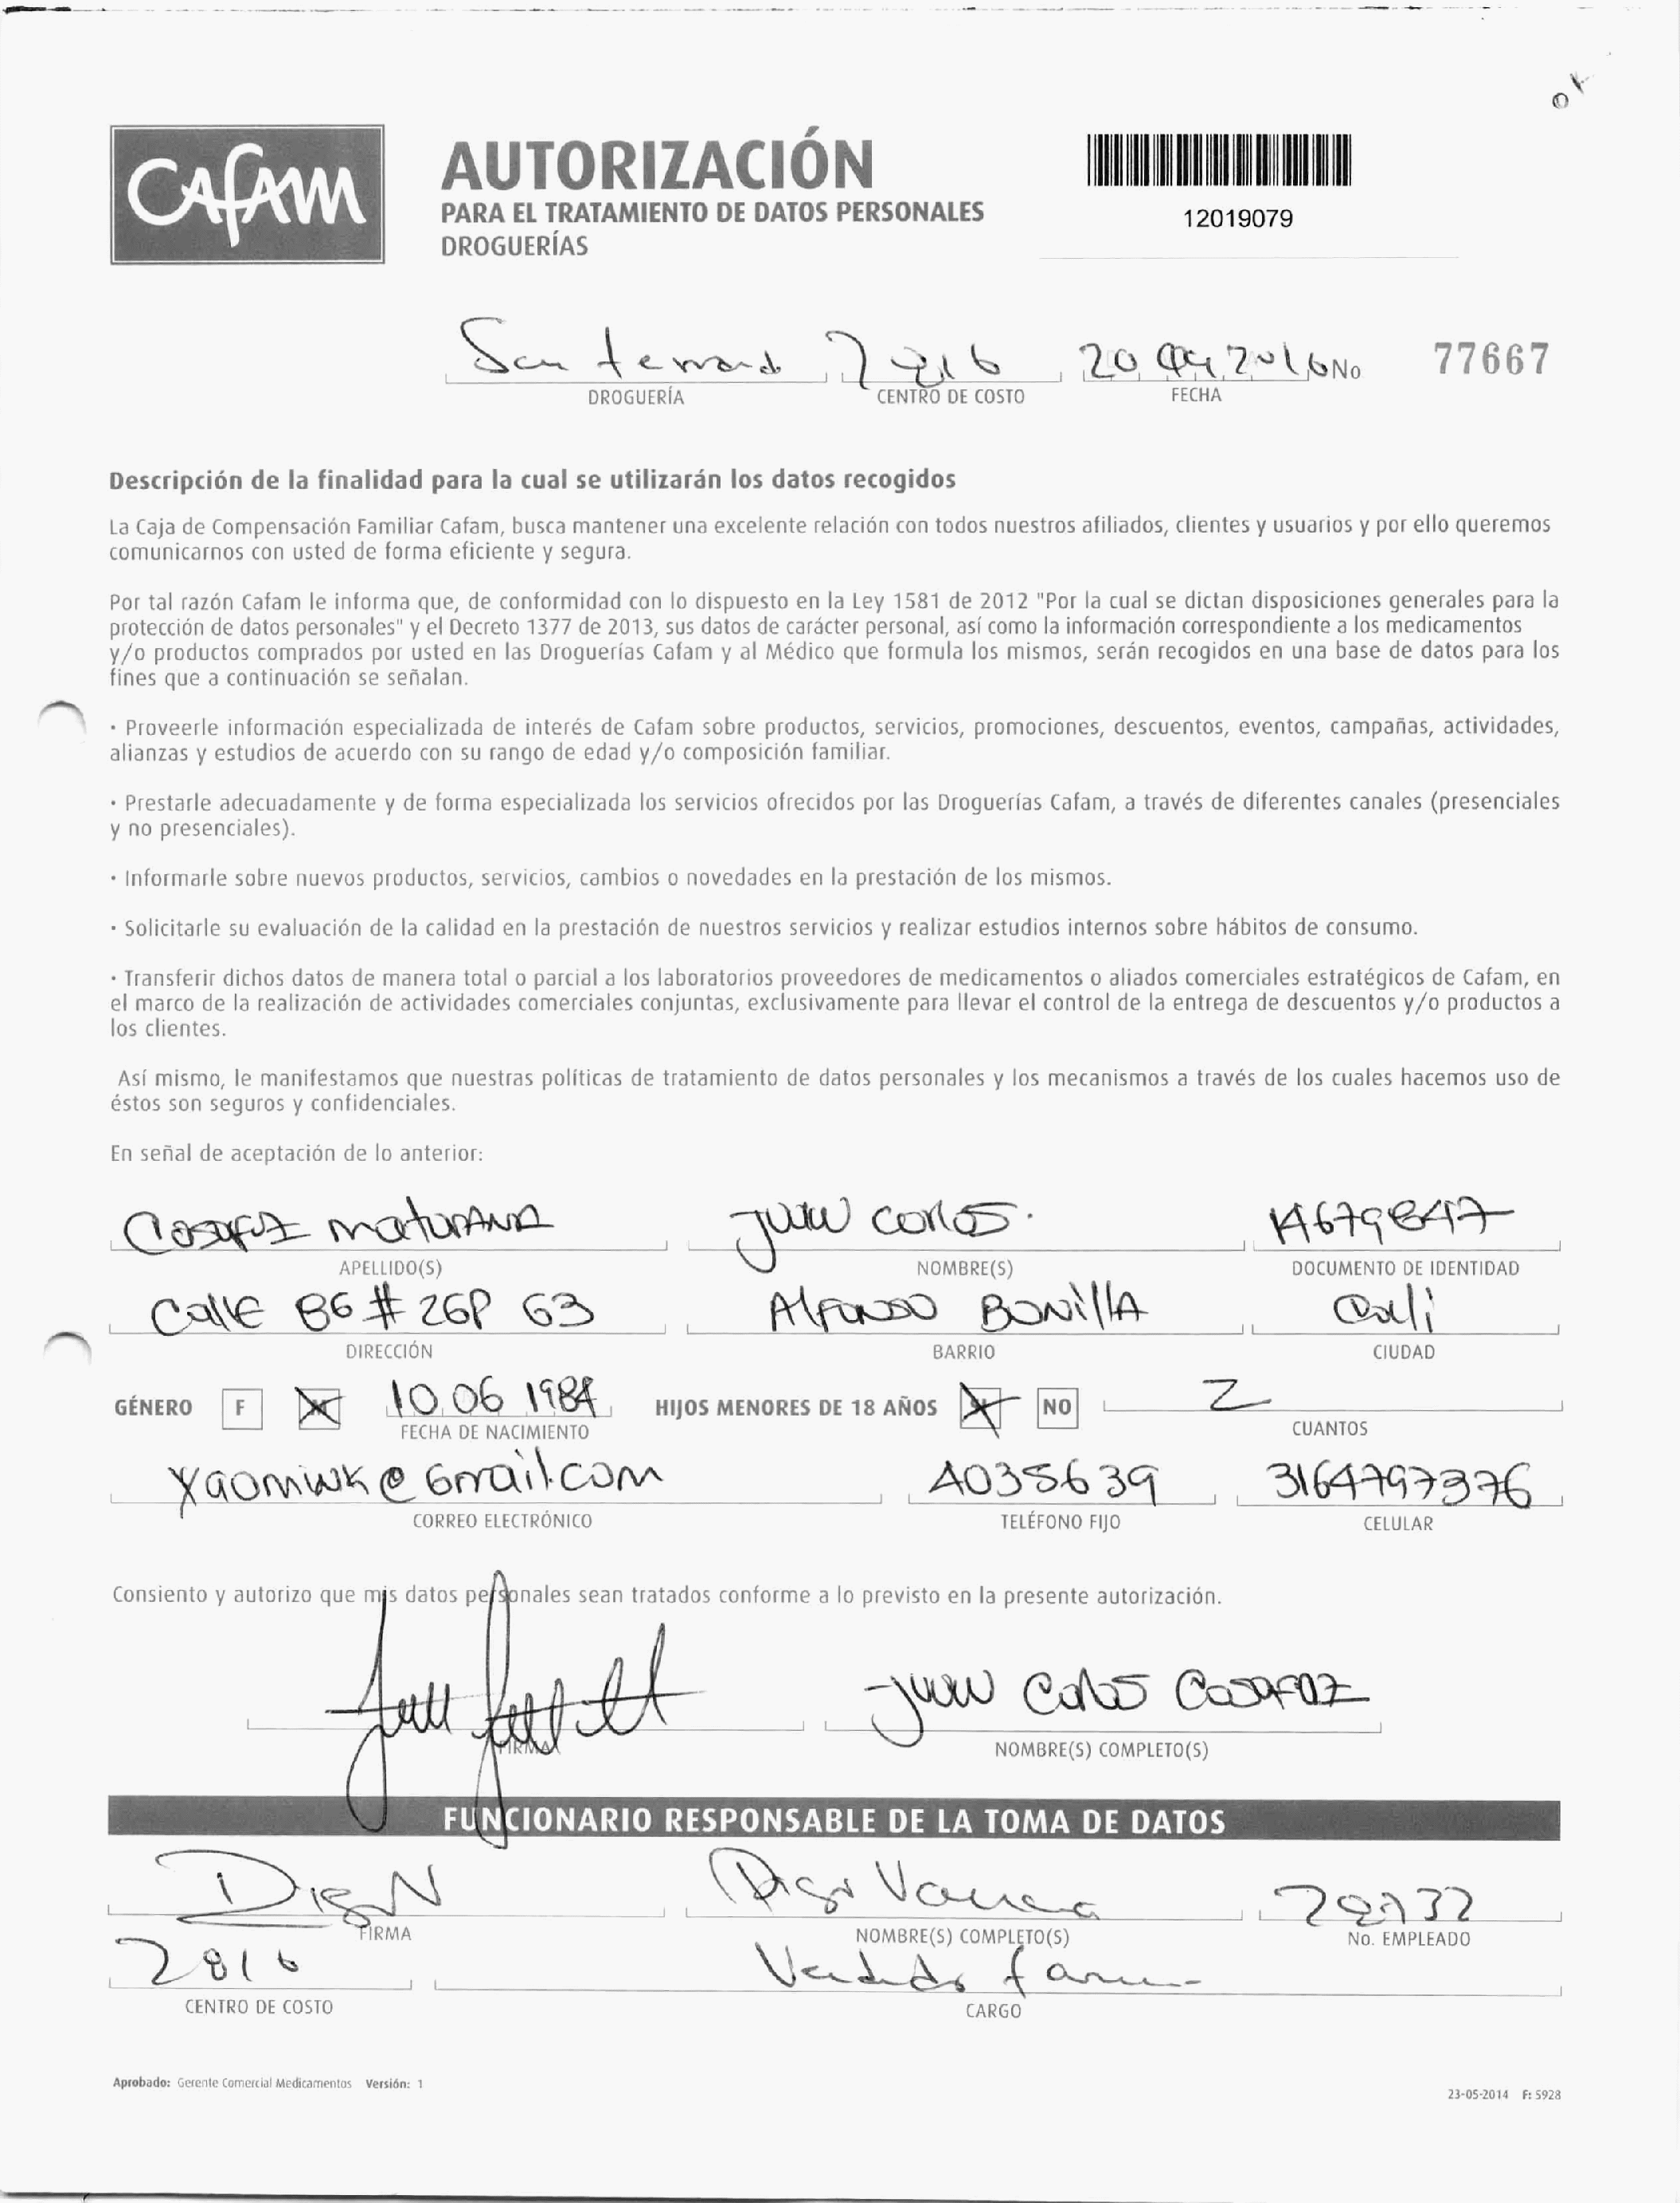 ok
CAFAM
AUTORIZACIÓN
PARA EL TRATAMIENTO DE DATOS PERSONALES
DROGUERÍAS
12019079
San fernando 2816 20 04 2016 No 77667
DROGUERÍA CENTRO DE COSTO FECHA
Descripción de la finalidad para la cual se utilizarán los datos recogidos
La Caja de Compensación Familiar Cafam, busca mantener una excelente relación con todos nuestros afiliados, clientes y usuarios y por ello queremos
comunicarnos con usted de forma eficiente y segura.
Por tal razón Cafam le informa que, de conformidad con lo dispuesto en la Ley 1581 de 2012 "Por la cual se dictan disposiciones generales para la
protección de datos personales" y el Decreto 1377 de 2013, sus datos de carácter personal, así como la información correspondiente a los medicamentos
y/o productos comprados por usted en las Droguerías Cafam y al Médico que formula los mismos, serán recogidos en una base de datos para los
fines que a continuación se señalan.
· Proveerle información especializada de interés de Cafam sobre productos, servicios, promociones, descuentos, eventos, campañas, actividades,
alianzas y estudios de acuerdo con su rango de edad y/o composición familiar.
· Prestarle adecuadamente y de forma especializada los servicios ofrecidos por las Droguerías Cafam, a través de diferentes canales (presenciales
y no presenciales).
· Informarle sobre nuevos productos, servicios, cambios o novedades en la prestación de los mismos.
· Solicitarle su evaluación de la calidad en la prestación de nuestros servicios y realizar estudios internos sobre hábitos de consumo.
· Transferir dichos datos de manera total o parcial a los laboratorios proveedores de medicamentos o aliados comerciales estratégicos de Cafam, en
el marco de la realización de actividades comerciales conjuntas, exclusivamente para llevar el control de la entrega de descuentos y/o productos a
los clientes.
Así mismo, le manifestamos que nuestras políticas de tratamiento de datos personales y los mecanismos a través de los cuales hacemos uso de
éstos son seguros y confidenciales.
En señal de aceptación de lo anterior:
maturana juan carlos. 14679847
APELLIDO(S) NOMBRE(S) DOCUMENTO DE IDENTIDAD
Calle 86 # 26P 63 Alfonso Bonilla Cali
DIRECCIÓN BARRIO CIUDAD
GÉNERO F 10 06 1984 HIJOS MENORES DE 18 AÑOS NO 2
FECHA DE NACIMIENTO CUANTOS
4035639 3164797376
CORREO ELECTRÓNICO TELÉFONO FIJO CELULAR
Consiento y autorizo que mis datos personales sean tratados conforme a lo previsto en la presente autorización.
juan Carlos
FIRMA NOMBRE(S) COMPLETO(S)
FUNCIONARIO RESPONSABLE DE LA TOMA DE DATOS
Diego
FIRMA NOMBRE(S) COMPLETO(S) No. EMPLEADO
2816
CENTRO DE COSTO CARGO
Aprobado: Gerente Comercial Medicamentos Versión: 1
23-05-2014 F: 5928